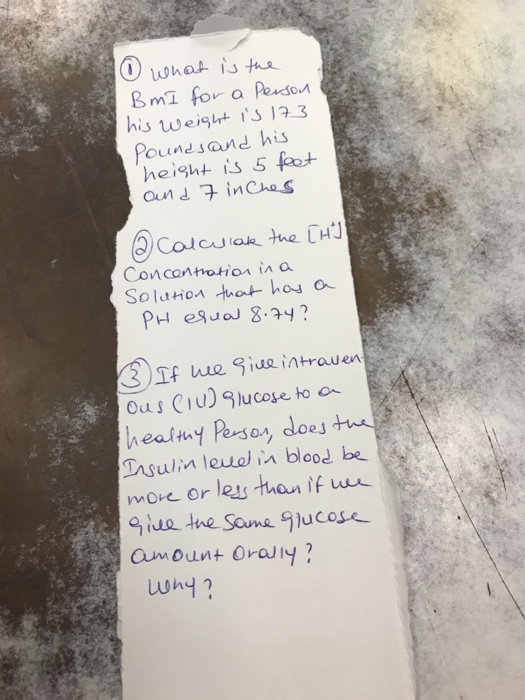 ① What is the
BMI for a Person
his weight is 173
Pounds and his
height is 5 feet
and 7 inches
② Calculate the [H⁺]
Concentration in a
Solution that has a
PH equal 8.74?
③ If we give intraven-
ous (IV) glucose to a
healthy Person, does the
Insulin level in blood be
more or less than if we
give the same glucose
amount orally?
Why?